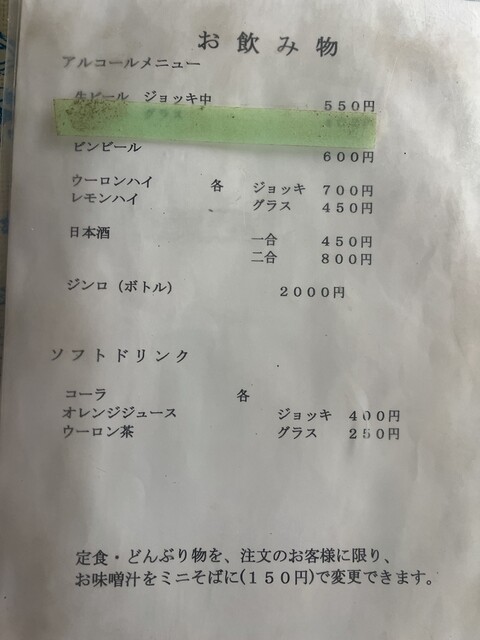 お飲み物
アルコールメニュー
生ビール ジョッキ中 550円
グラス
ビンビール
600円
ウーロンハイ 各 ジョッキ 700円
レモンハイ グラス 450円
日本酒 一合 450円
二合 800円
ジンロ(ボトル) 2000円
ソフトドリンク
コーラ 各
オレンジジュース ジョッキ 400円
ウーロン茶 グラス 250円
定食・どんぶり物を、注文のお客様に限り、
お味噌汁をミニそばに(150円)で変更できます。